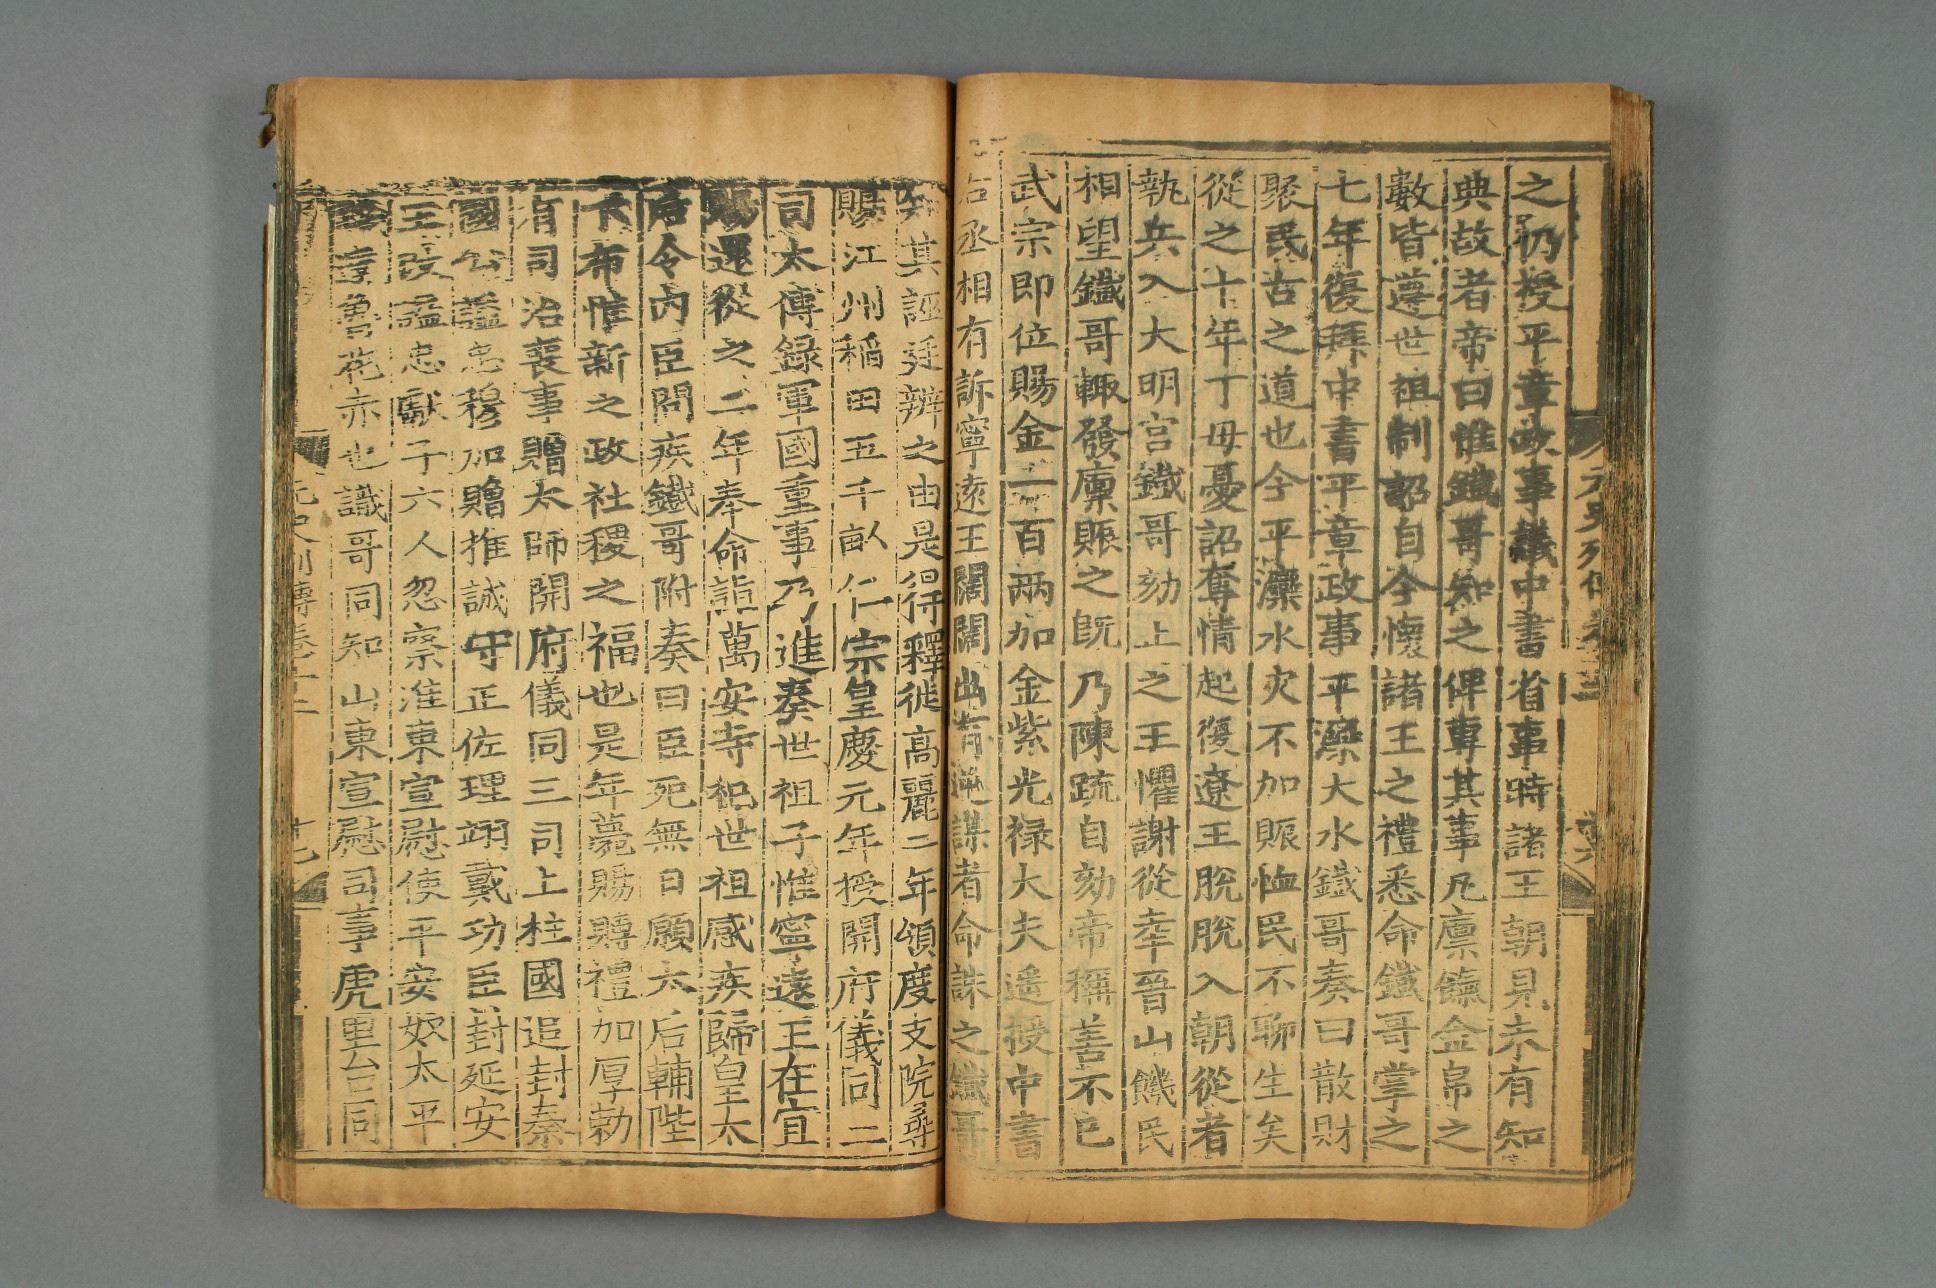 元史列傳卷十二
十六
之仍授平章政事議中書省事時諸王朝見未有知
典故者帝曰惟鐵哥知之俾專其事凡廪餼金帛之
數皆遵世祖制詔自今懷諸王之禮悉命鐵哥掌之
七年復拜中書平章政事平灤大水鐵哥奏曰散財
聚民古之道也今平灤水灾不加賑恤民不聊生矣
從之十年丁母憂詔奪情起復遼王脫脫入朝從者
執兵入大明宫鐵哥劾止之王懼謝從幸晉山饑民
相望鐵哥輒發廪賑之旣乃陳疏自劾帝稱善不已
武宗即位賜金一百兩加金紫光禄大夫遥授中書
右丞相有訴寧遠王闊闊出有逆謀者命誅之鐵哥
知其誣廷辨之由是得釋徙高麗二年領度支院尋
賜江州稻田五千畝仁宗皇慶元年授開府儀同三
司太傅録軍國重事乃進奏世祖子惟寧遠王在宜
賜還從之二年奉命詣萬安寺祀世祖感疾歸皇太
后令内臣問疾鐵哥附奏曰臣死無日願太后輔陛
下布惟新之政社稷之福也是年薨賜賻禮加厚勅
有司治喪事贈太師開府儀同三司上柱國追封秦
國公諡忠穆加贈推誠守正佐理翊戴功臣封延安
王改諡忠獻子六人忽察淮東宣慰使平安奴太平
路達魯花赤也識哥同知山東宣慰司事虎里台同
元史列傳卷十二
十七